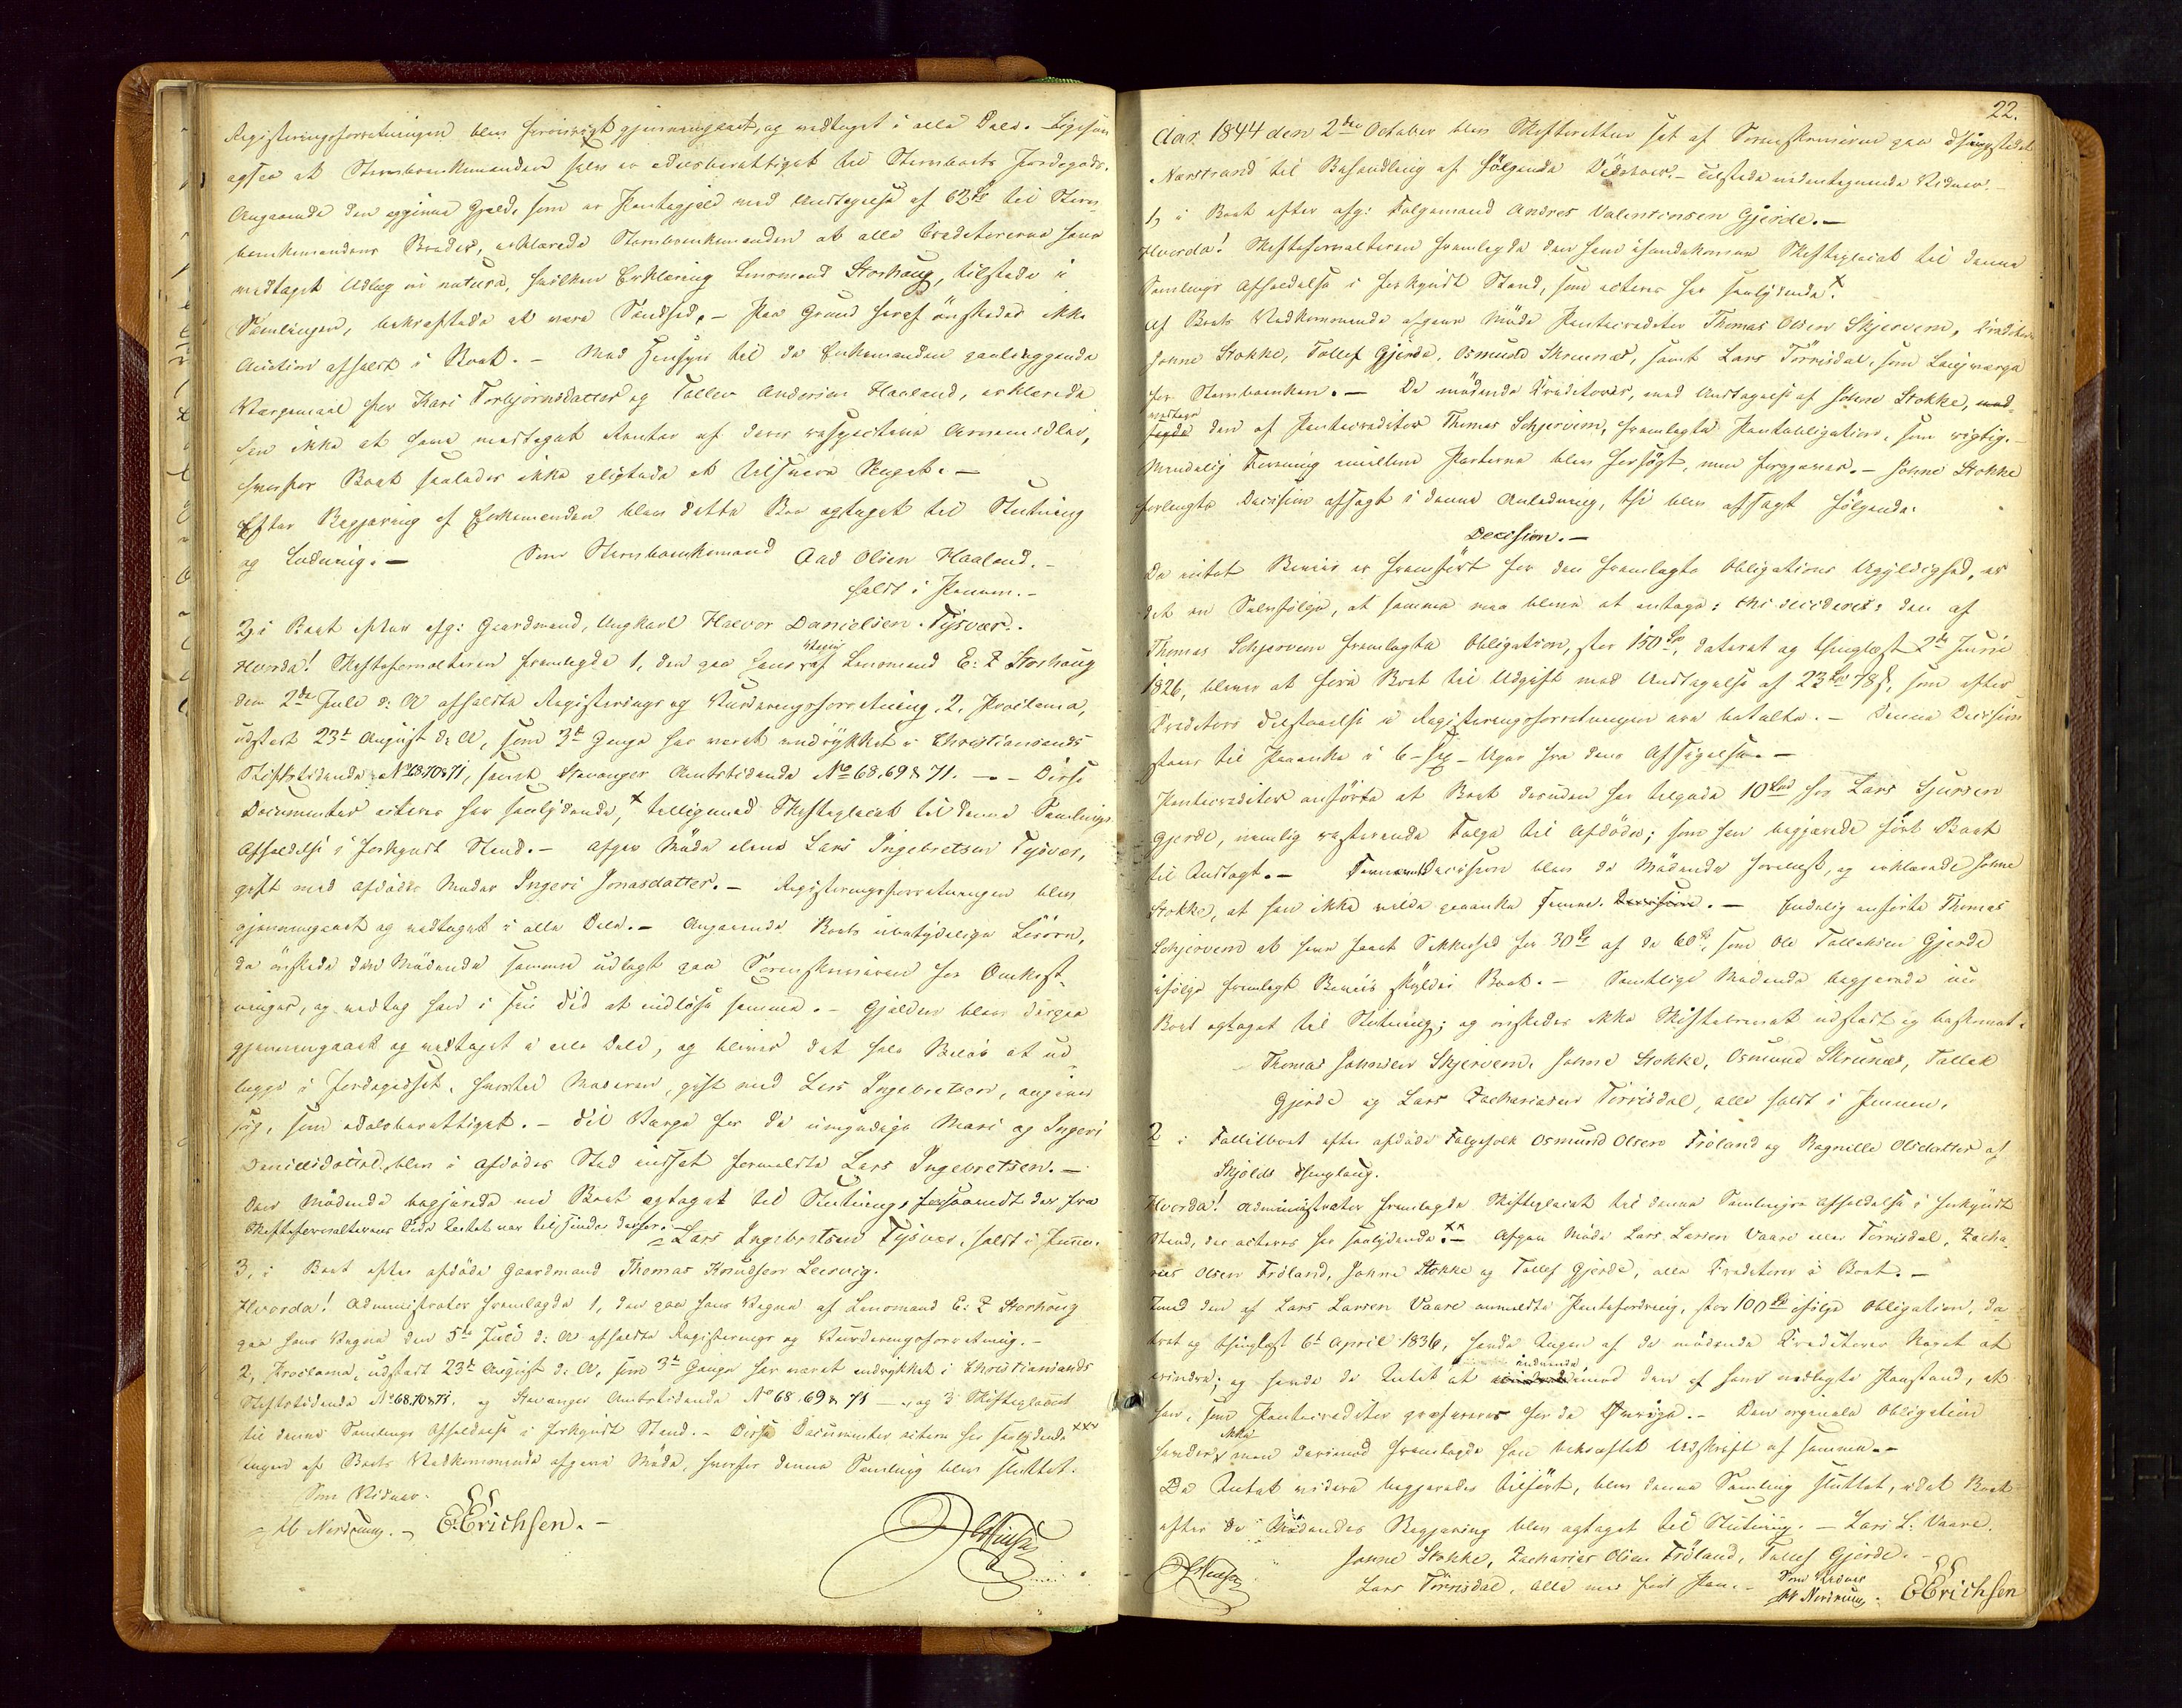 Registeringsforretningen blev forøvrigt gjennemgaaet, og vedtaget i alle Dele. Ligesom
ogsaa at Stervboenkemanden selv er odelsberettiget til Stervboets Jordegods.
Angaaende den opgivne Gjeld, som er Pantegjeld med Undtagelse af 62 Sp til Sterv-
boenkemandens Broder, erklærede Stervboenkemanden at alle Creditorerne have
vedtaget Udlæg in natura, hvilken Erklæring Lensmand Storhaug, tilstede i
Samlingen, bekræftede at være Sandhed. - Paa Grund heraf ønskedes ikke
Auction afholdt i Boet. - Med Hensyn til de Enkemanden paaliggende
Værgemaal for Kari Torbjørnsdatter og Tollev Andersen Haaland, erklærede
han ikke at have modtaget Renter af deres respective Arvemidler,
hvorfor Boet saaledes ikke pligtede at tilsvare Noget. -
Efter Begjæring af Enkemanden blev dette Boe optaget til Slutning
og Endning. - Som Stervboenkemand Aad Olsen Haaland. -
holdt i Pennen. -
2, i Boet efter afg: Gaardmand, Ungkarl Halvor Danielsen Tysvær.
Hvorda! Skifteforvalteren fremlagde 1, den paa hans Vegne af Lensmand E: Z Storhaug
den 2de Juli d: A afholdte Registerings og Vurderingsforretning, 2, Proclama,
udstædt 23de August d: A, som 3de Gange har været indrykket i Christiansands
Stiftstidende No 68.70 & 71, samt Stavanger Amtstidende No 68.69 & 71. - Disse
Documenter acteres her saalydende, x tilligemed Skifteplacat til denne Samlings
Afholdelse i forkyndt Stand. - Afgav Møde alene Lars Ingebretsen Tysvær,
gift med afdødes Moder Ingeri Jonasdatter. - Registeringsforretningen blev
gjennemgaaet og vedtaget i alle Dele. - Angaaende Boets ubetydelige Løsøre,
da ønskede den Mødende samme udlagt paa Sorenskriveren for Omkost-
ninger, og vedtog han i sin Tid at indløse samme. - Gjelden blev derpaa
gjennemgaaet og vedtaget i alle Dele, og bliver det hele Beløb at ud-
lægge i Jordegodset, hvortil Moderen, gift med Lars Ingebretsen, angiver
sig, som odelsberettiget. - Til Værge for de umyndige Mari og Ingeri
Danielsdøttre, blev i Afdødes Sted indsat formeldte Lars Ingebretsen. -
Den Mødende begjærede nu Boet optaget til Slutning, forsaavidt der fra
Skifteforvalterens Side Intet var til Hinder derfor. - Lars Ingebretsen Tysvær, holdt i Pennen.
3, i Boet efter afdøde Gaardmand Thomas Knudsen Leervig.
Hvorda! Administrator fremlagde 1, den paa hans Vegne af Lensmand E: Z Storhaug
paa hans Vegne den 5te Juli d: A afholdte Registerings og Vurderingsforretning. -
2, Proclama, udstædt 23de August d: A, som 3de Gange har været indrykket i Christiansands
Stiftstidende No 68.70 & 71. og Stavanger Amtstidende No 68.69 & 71 - og 3, Skifteplacat
til denne Samlings Afholdelse i forkyndt Stand. - Disse Documenter acteres her saalydende xxx
Ingen af Boets Vedkommende afgave Møde, hvorfor denne Samling blev sluttet.
Som Vidner.
Nordrum. - E. Erichsen. -
22.
Aar 1844 den 2den October blev Skifteretten sat af Sorenskriveren paa Thingstedet
Nærstrand til Behandling af følgende Dødsboer. - Tilstede undertegnede Vidner. -
1, i Boet efter afg: Følgemand Andres Valentinsen Gjerde. -
Hvorda! Skifteforvalteren fremlagde den ham ihændekomne Skifteplacat til denne
Samlings Afholdelse i forkyndt Stand, som acteres her saalydende x.
Af Boets Vedkommende afgave Møde Pantecreditor Thomas Olsen Skjervem, Creditor
Johne Stokke, Tollef Gjerde, Osmund Skrunes, samt Lars Tørrisdal, som Laugværge
for Stervboenken. - De mødende Creditorer, med Undtagelse af Johne Stokke, ved-
vedtage den af Pantecreditor Thomas Schjervem, fremlagte Pantobligation, som rigtig. -
Mindelig Forening imellem Parterne blev forsøgt, men forgjæves. - Johne Stokke
forlangte Decision afsagt i denne Anledning, thi blev afsagt følgende:
Decision. -
Da intet Beviis er fremført for den fremlagte Obligations Ugyldighed, er
det en Selvfølge, at samme maa blive at antage: thi decideres: den af
Thomas Schjervem fremlagte Obligation, stor 150 Sp, dateret og thinglæst 2de Junii
1826, bliver at føre Boet til Udgift med Undtagelse af 23 Sp 78 s, som efter
Creditors Tilstaaelse i Registeringsforretningen ere betalte. - Denne Decision
staaer til Paaanke i 6 - sex - Uger fra dens Afsigelse. -
Pantecreditor anførte at Boet desuden har tilgode 10 hos Lars Sjursen
Gjerde, nemlig resterende Følge til Afdøde; som han begjærede ført Boet
til Indtægt. - Decision blev de Mødende forelæst, og erklærede Johne
Stokke, at han ikke vilde paaanke samme. - Endelig anførte Thomas
Schjervem at have faaet Sikkerhed for 30 Sp af de 60 Sp, som Ole Tollaksen Gjerde
ifølge fremlagt Beviis skylder Boet. - Samtlige Mødende begjærede nu
Boet optaget til Slutning; og ønskedes ikke Skiftebrevet udstædt og beskrevet.
Thomas Johnsen Skjervem, Johne Stokke, Osmund Skrunes, Tallak
Gjerde og Lars Zachariasen Tørrisdal, alle holdt i Pennen.
2 i Fallitboet efter afdøde Følgefolk Osmund Olsen Frøland og Ragnilde Olsdatter af
Skjolds Thinglaug.
Hvorda! Administrator fremlagde Skifteplacat til denne Samlings Afholdelse i forkyndt
Stand, der acteres her saalydende xx. - Afgav Møde Lars Larsen Vaare Tørrisdal, Zacha-
rias Olsen Frøland, Johne Stokke og Tollef Gjerde, alle Creditorer i Boet. -
Imod den af Lars Larsen Vaare anmeldte Pantefordring, stor 100 Sp ifølge Obligation, da-
teret og thinglæst 6te April 1836, havde Ingen af de mødende Creditorer Noget at
erindre; og havde de Intet at indvende mod den af ham nedlagte Paastand, at
han, som Pantecreditor præfereres for de Øvrige. - Den orginale Obligation
havdes ikke men derimod fremlagde han bekræftet Udskrift af samme. -
Da Intet videre begjæredes tilført, blev denne Samling sluttet, idet Boet
efter de Mødendes Begjæring blev optaget til Slutning. - Lars L: Vaare.
Johne Stokke, Zacharias Olsen Frøland, Tollef Gjerde. -
Lars Tørrisdal, alle med holdt Pen. - Som Vidner
Nordrum. E. Erichsen